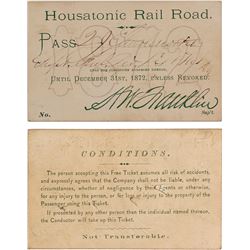 Housatonic Rail Road.
PASS
UNTIL DECEMBER 31ST, 1872, UNLESS REVOKED.
H W Franklin
No.
Sup't.
CONDITIONS.
The person accepting this Free Ticket assumes all risk of accidents,
and expressly agrees that the Company shall not be liable, under any
circumstances, whether of negligence by their Agents or otherwise,
for any injury to the person, or for loss or injury to the property of the
Passenger using this Ticket.
If presented by any other person than the individual named thereon,
the Conductor will take up this Ticket and collect fare.
Not Transferable.